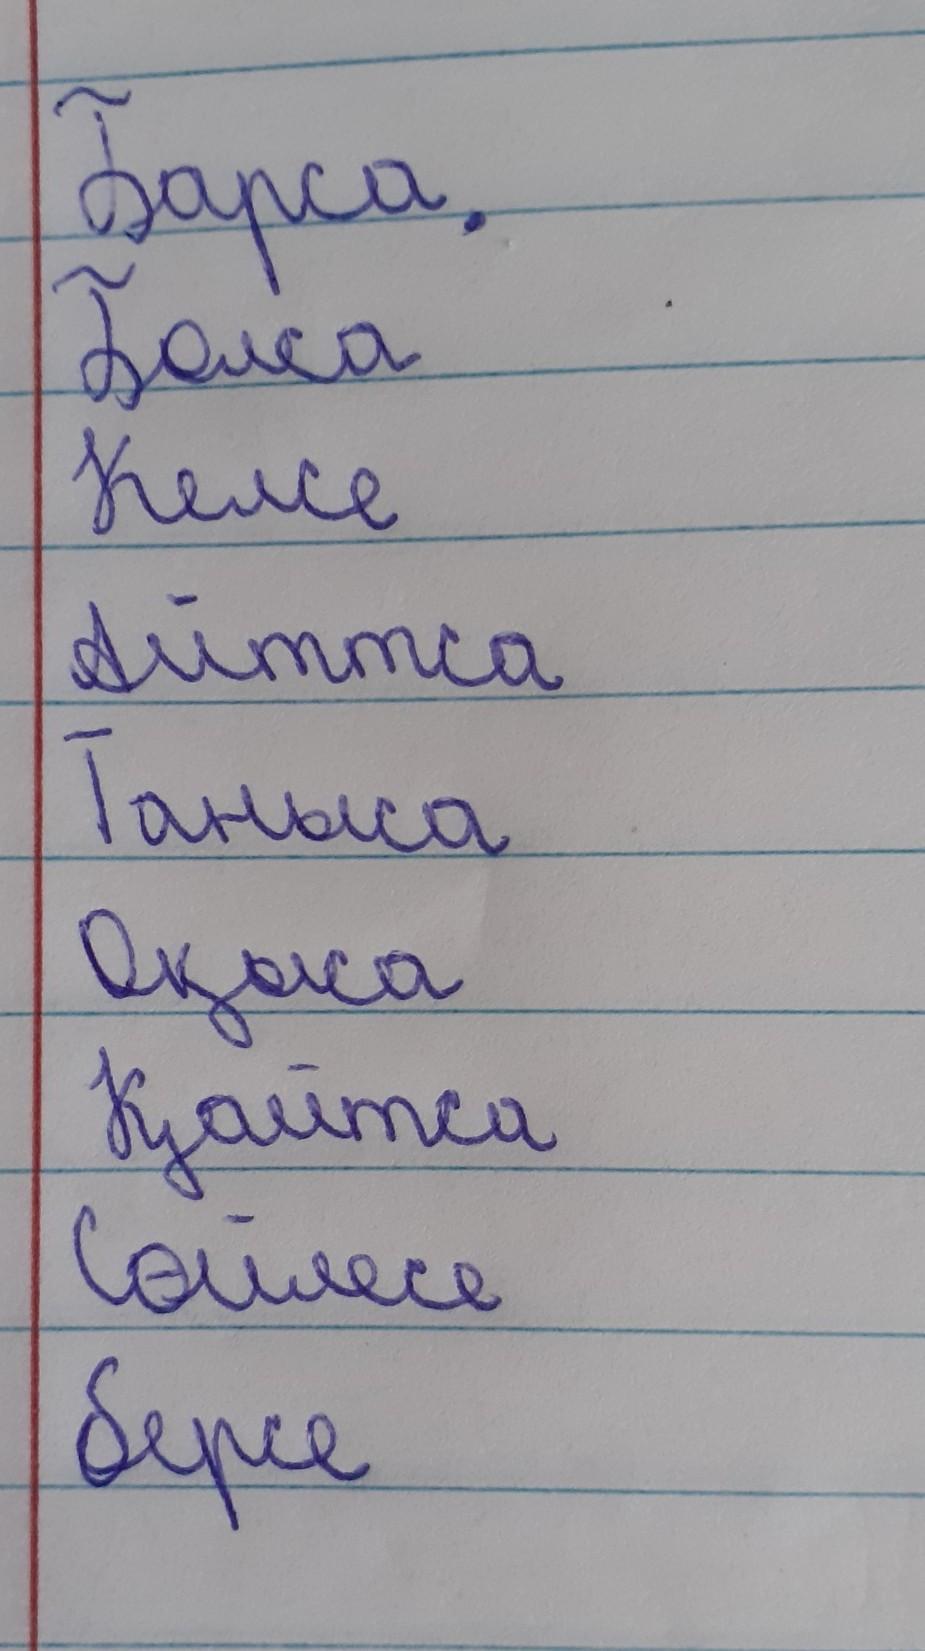 Барса.
Болса
Келсе
Айттса
Таныса
Оқыса
Қайтса
Сөйлесе
берсе